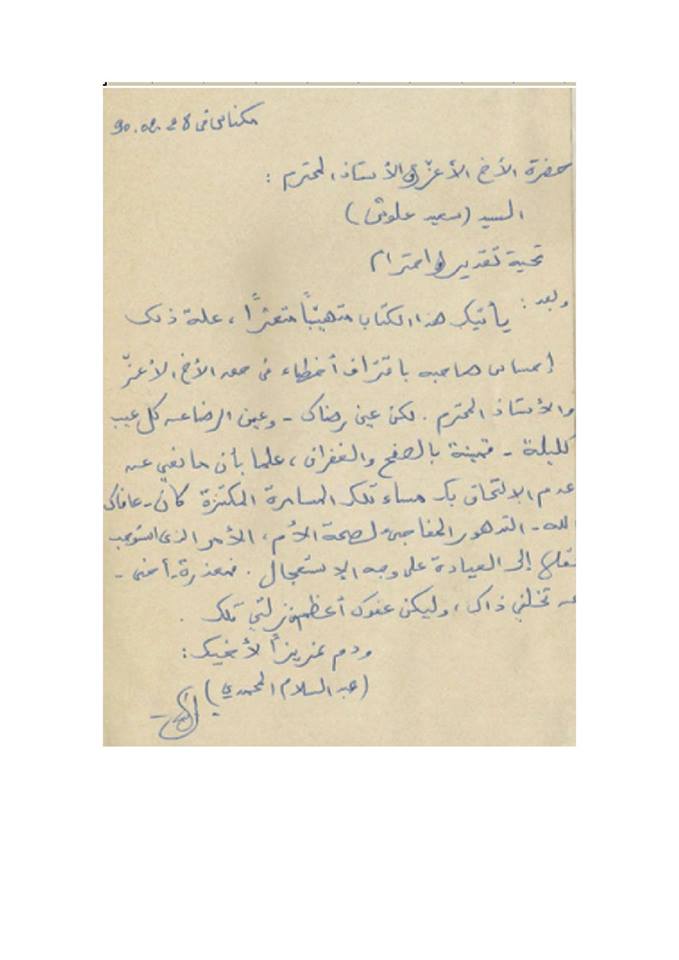 مكناس في 28. 02. 90
حضرة الأخ الأعزّ والأستاذ المحترم :
السيد (سعيد علوش)
تحية تقدير واحترام
وبعد : يأتيك هذا الكتاب متهيّبًا متعثرًا، علة ذلك
إحساس صاحبه باقتراف أخطاء في حق الأخ الأعزّ
والأستاذ المحترم . لكن عين رضاك - وعين الرضا عن كل عيب
كليلة - قمينة بالصفح والغفران، علما بأن ما نفى عنه
عدم الالتحاق بك مساء تلك المسامرة المكتنزة كان - عافاك
الله - التدهور المفاجئ لصحة الأم، الأمر الذي استوجب
نقلها إلى العيادة على وجه الاستعجال . فمعذرة - أخي -
عن تخلفي ذاك، وليكن عفوك أعظم من زلتي تلك .
ودم عزيزاً لأخيك :
(عبد السلام المحمدي)